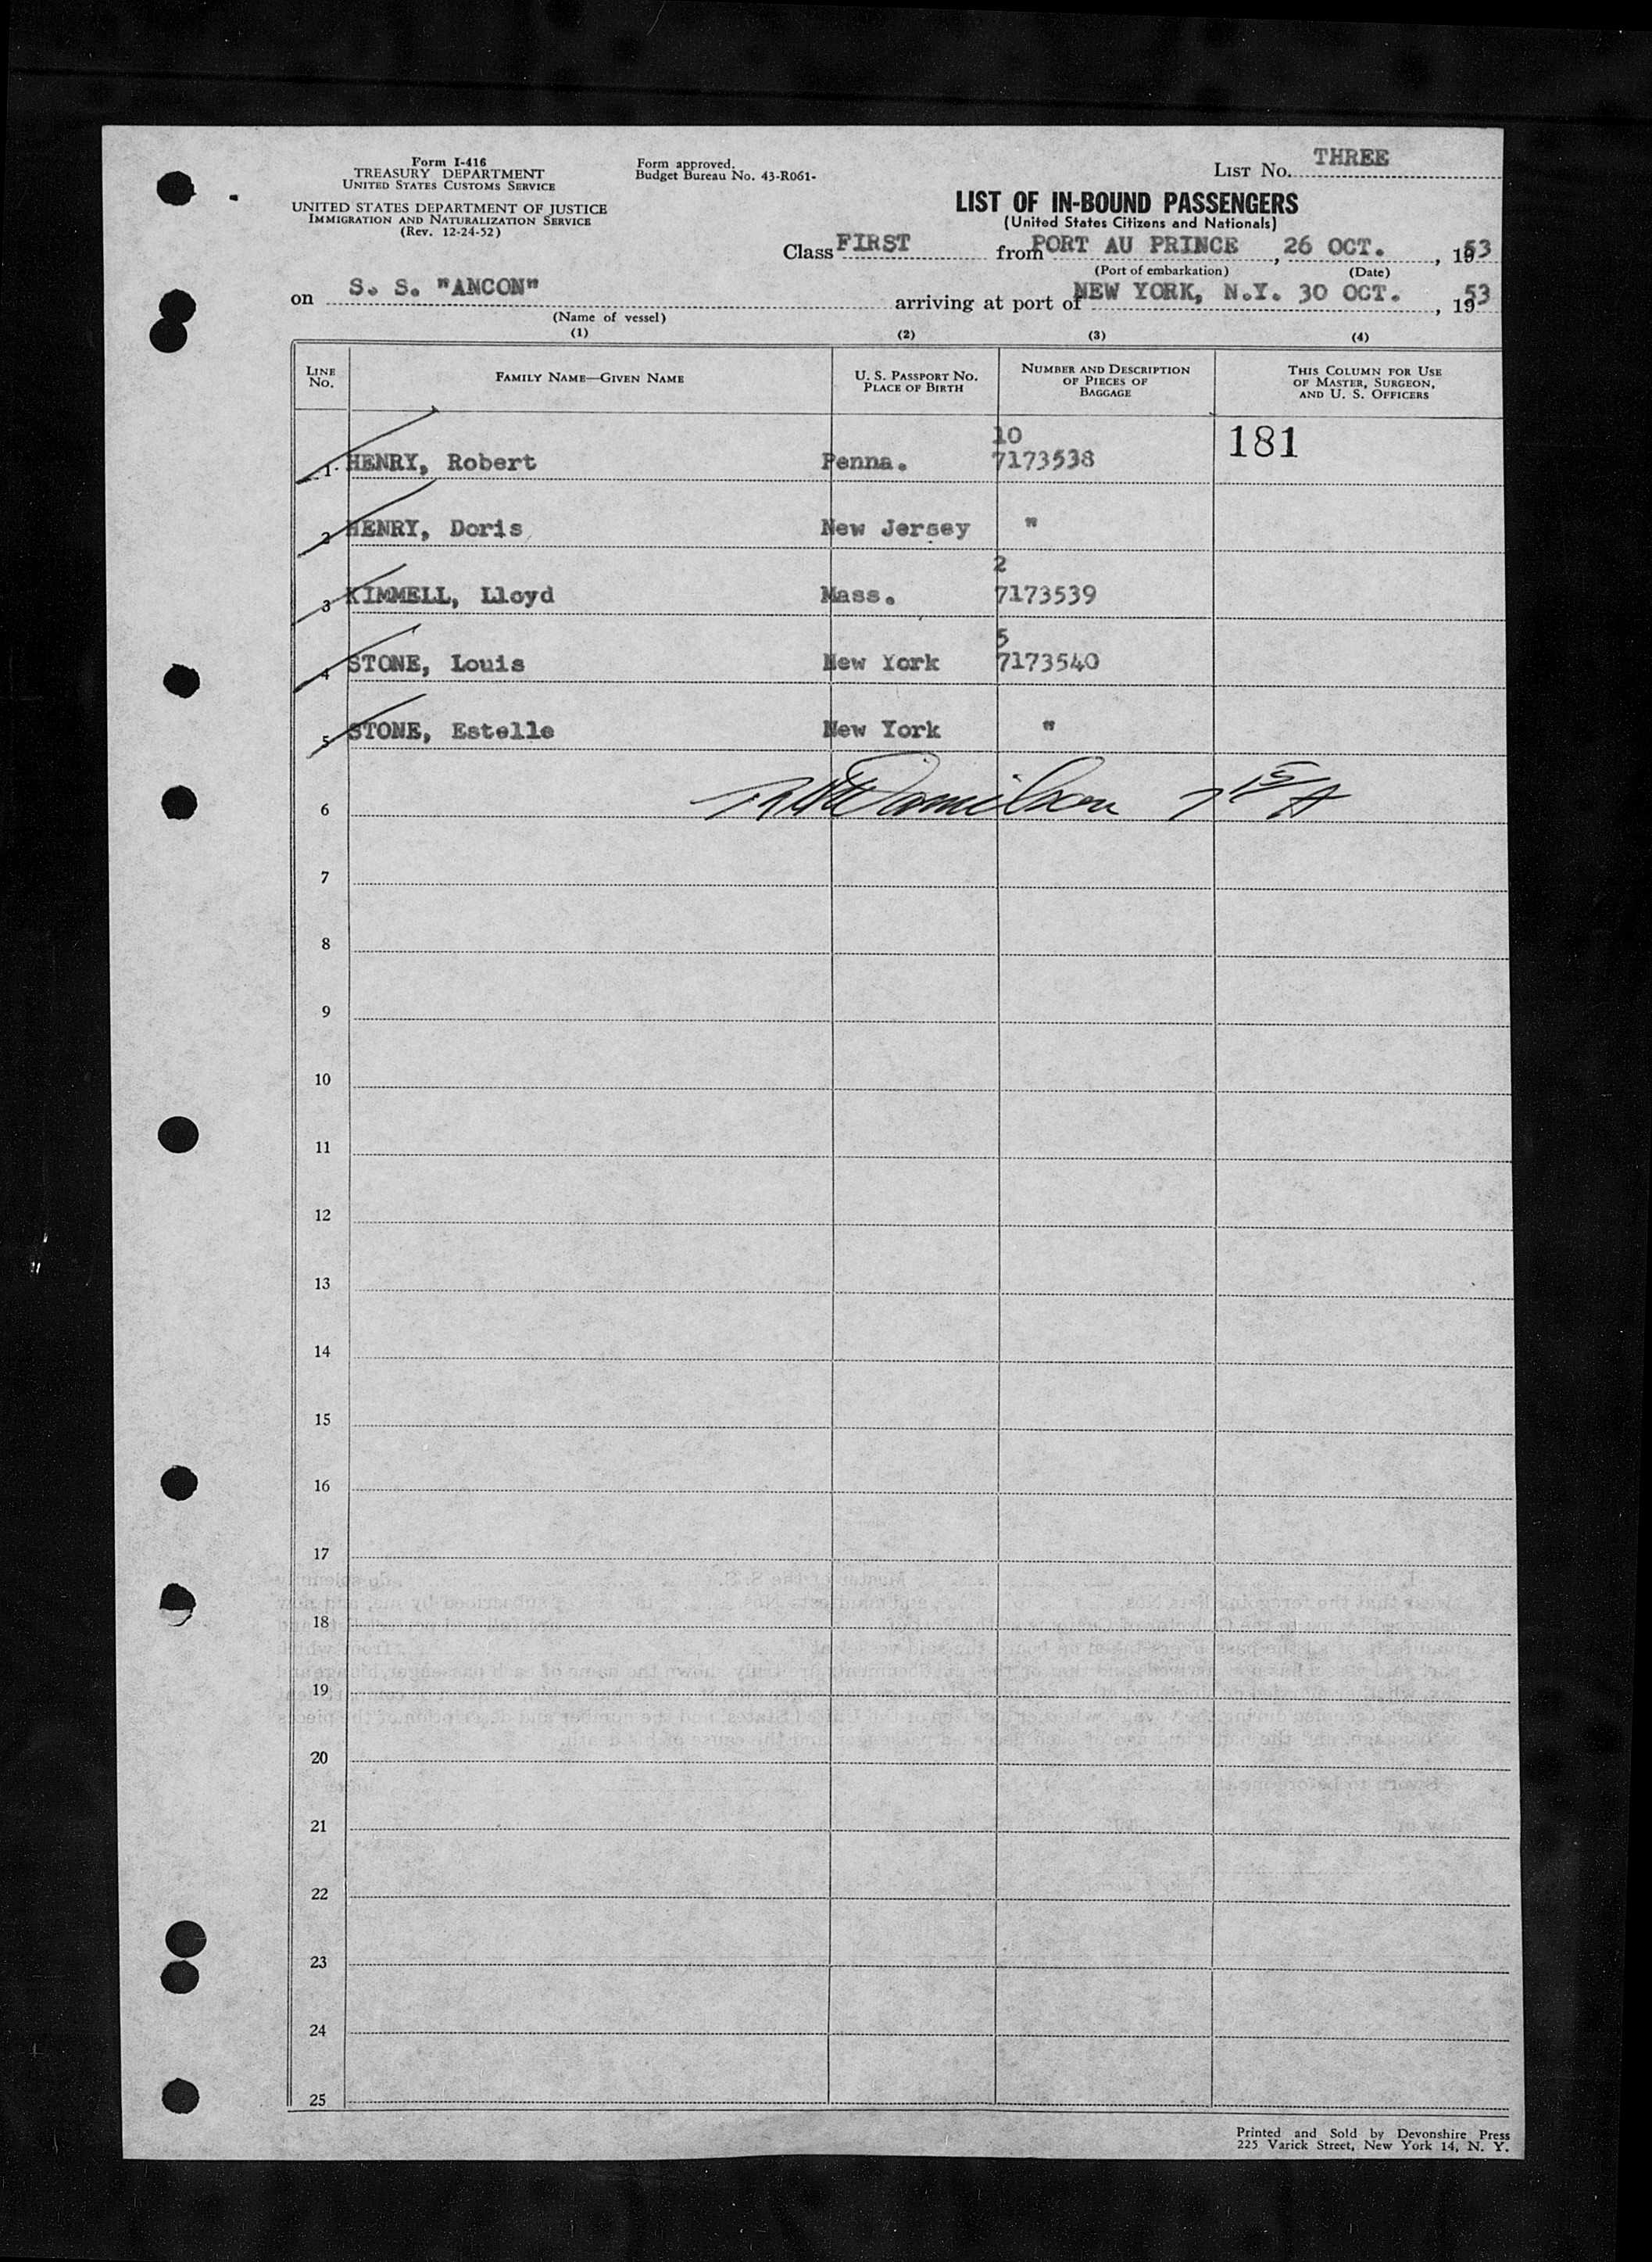 Form I-416
TREASURY DEPARTMENT
UNITED STATES CUSTOMS SERVICE
UNITED STATES DEPARTMENT OF JUSTICE
IMMIGRATION AND NATURALIZATION SERVICE
(Rev. 12-24-52)
Form approved.
Budget Bureau No. 43-R061-
LIST No. THREE
LIST OF IN-BOUND PASSENGERS
(United States Citizens and Nationals)
Class FIRST from PORT AU PRINCE, 26 OCT., 1953
(Port of embarkation) (Date)
on S. S. "ANCON" arriving at port of NEW YORK, N.Y. 30 OCT., 1953
(Name of vessel)
(1) (2) (3) (4)
LINE No. FAMILY NAME—GIVEN NAME U. S. PASSPORT No. PLACE OF BIRTH NUMBER AND DESCRIPTION OF PIECES OF BAGGAGE THIS COLUMN FOR USE OF MASTER, SURGEON, AND U. S. OFFICERS
10 181
1 HENRY, Robert Penna. 7173538
2 HENRY, Doris New Jersey "
2
3 KIMMELL, Lloyd Mass. 7173539
5
4 STONE, Louis New York 7173540
5 STONE, Estelle New York "
6
7
8
9
10
11
12
13
14
15
16
17
18
19
20
21
22
23
24
25
Printed and Sold by Devonshire Press
225 Varick Street, New York 14, N. Y.